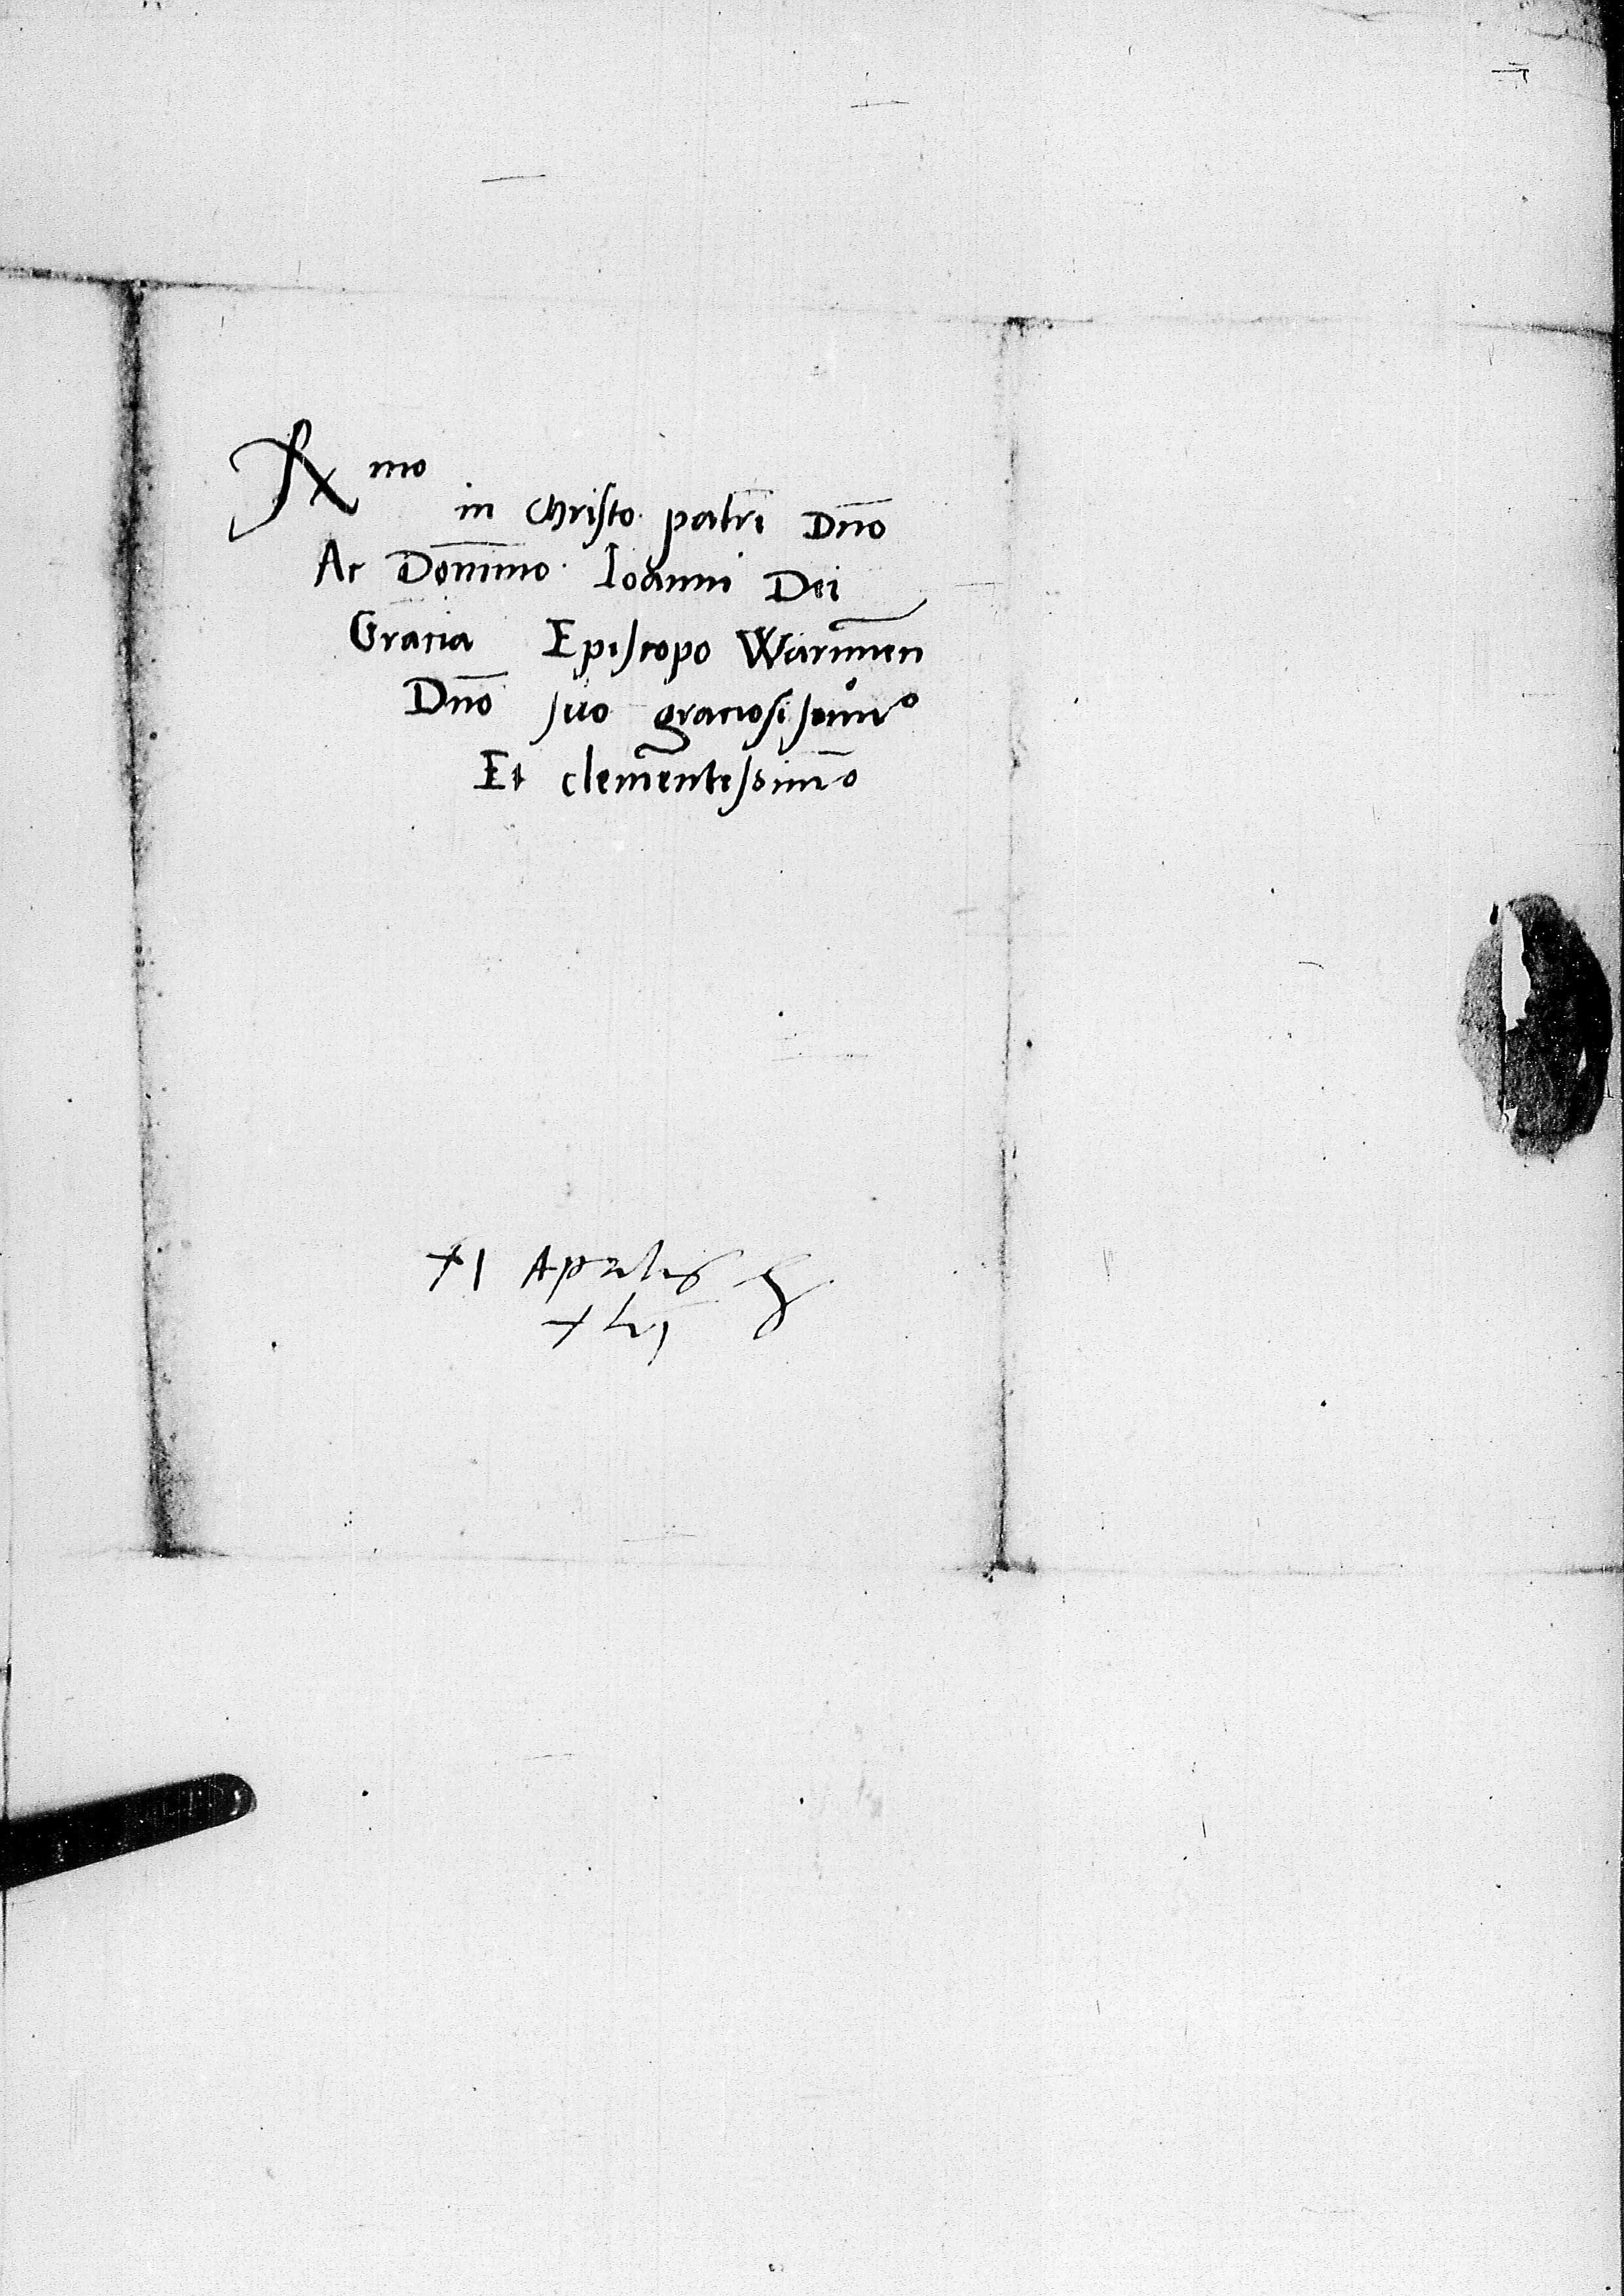 Rmo
in Christo patri Dno
Ac Domino Ioanni Dei
Gracia Episcopo Warmien
Dno suo graciosissimo
Et clementissimo
XI Aprilis
xlvi